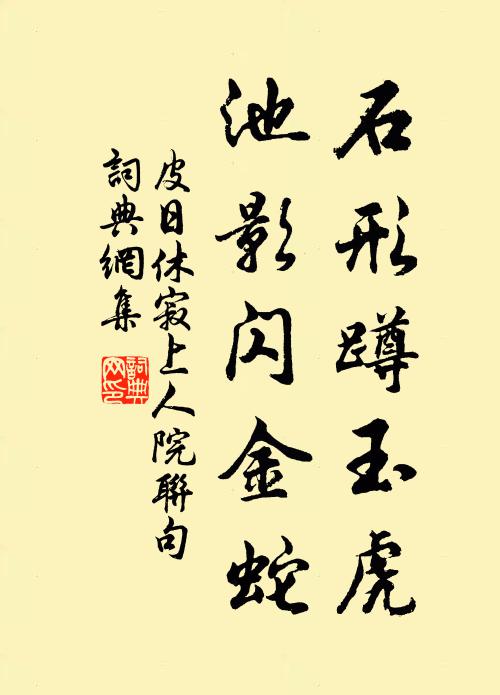 石形蹲玉虎
池影闪金蛇
皮日休寂上人院聯句
詞典網集
詞典网印